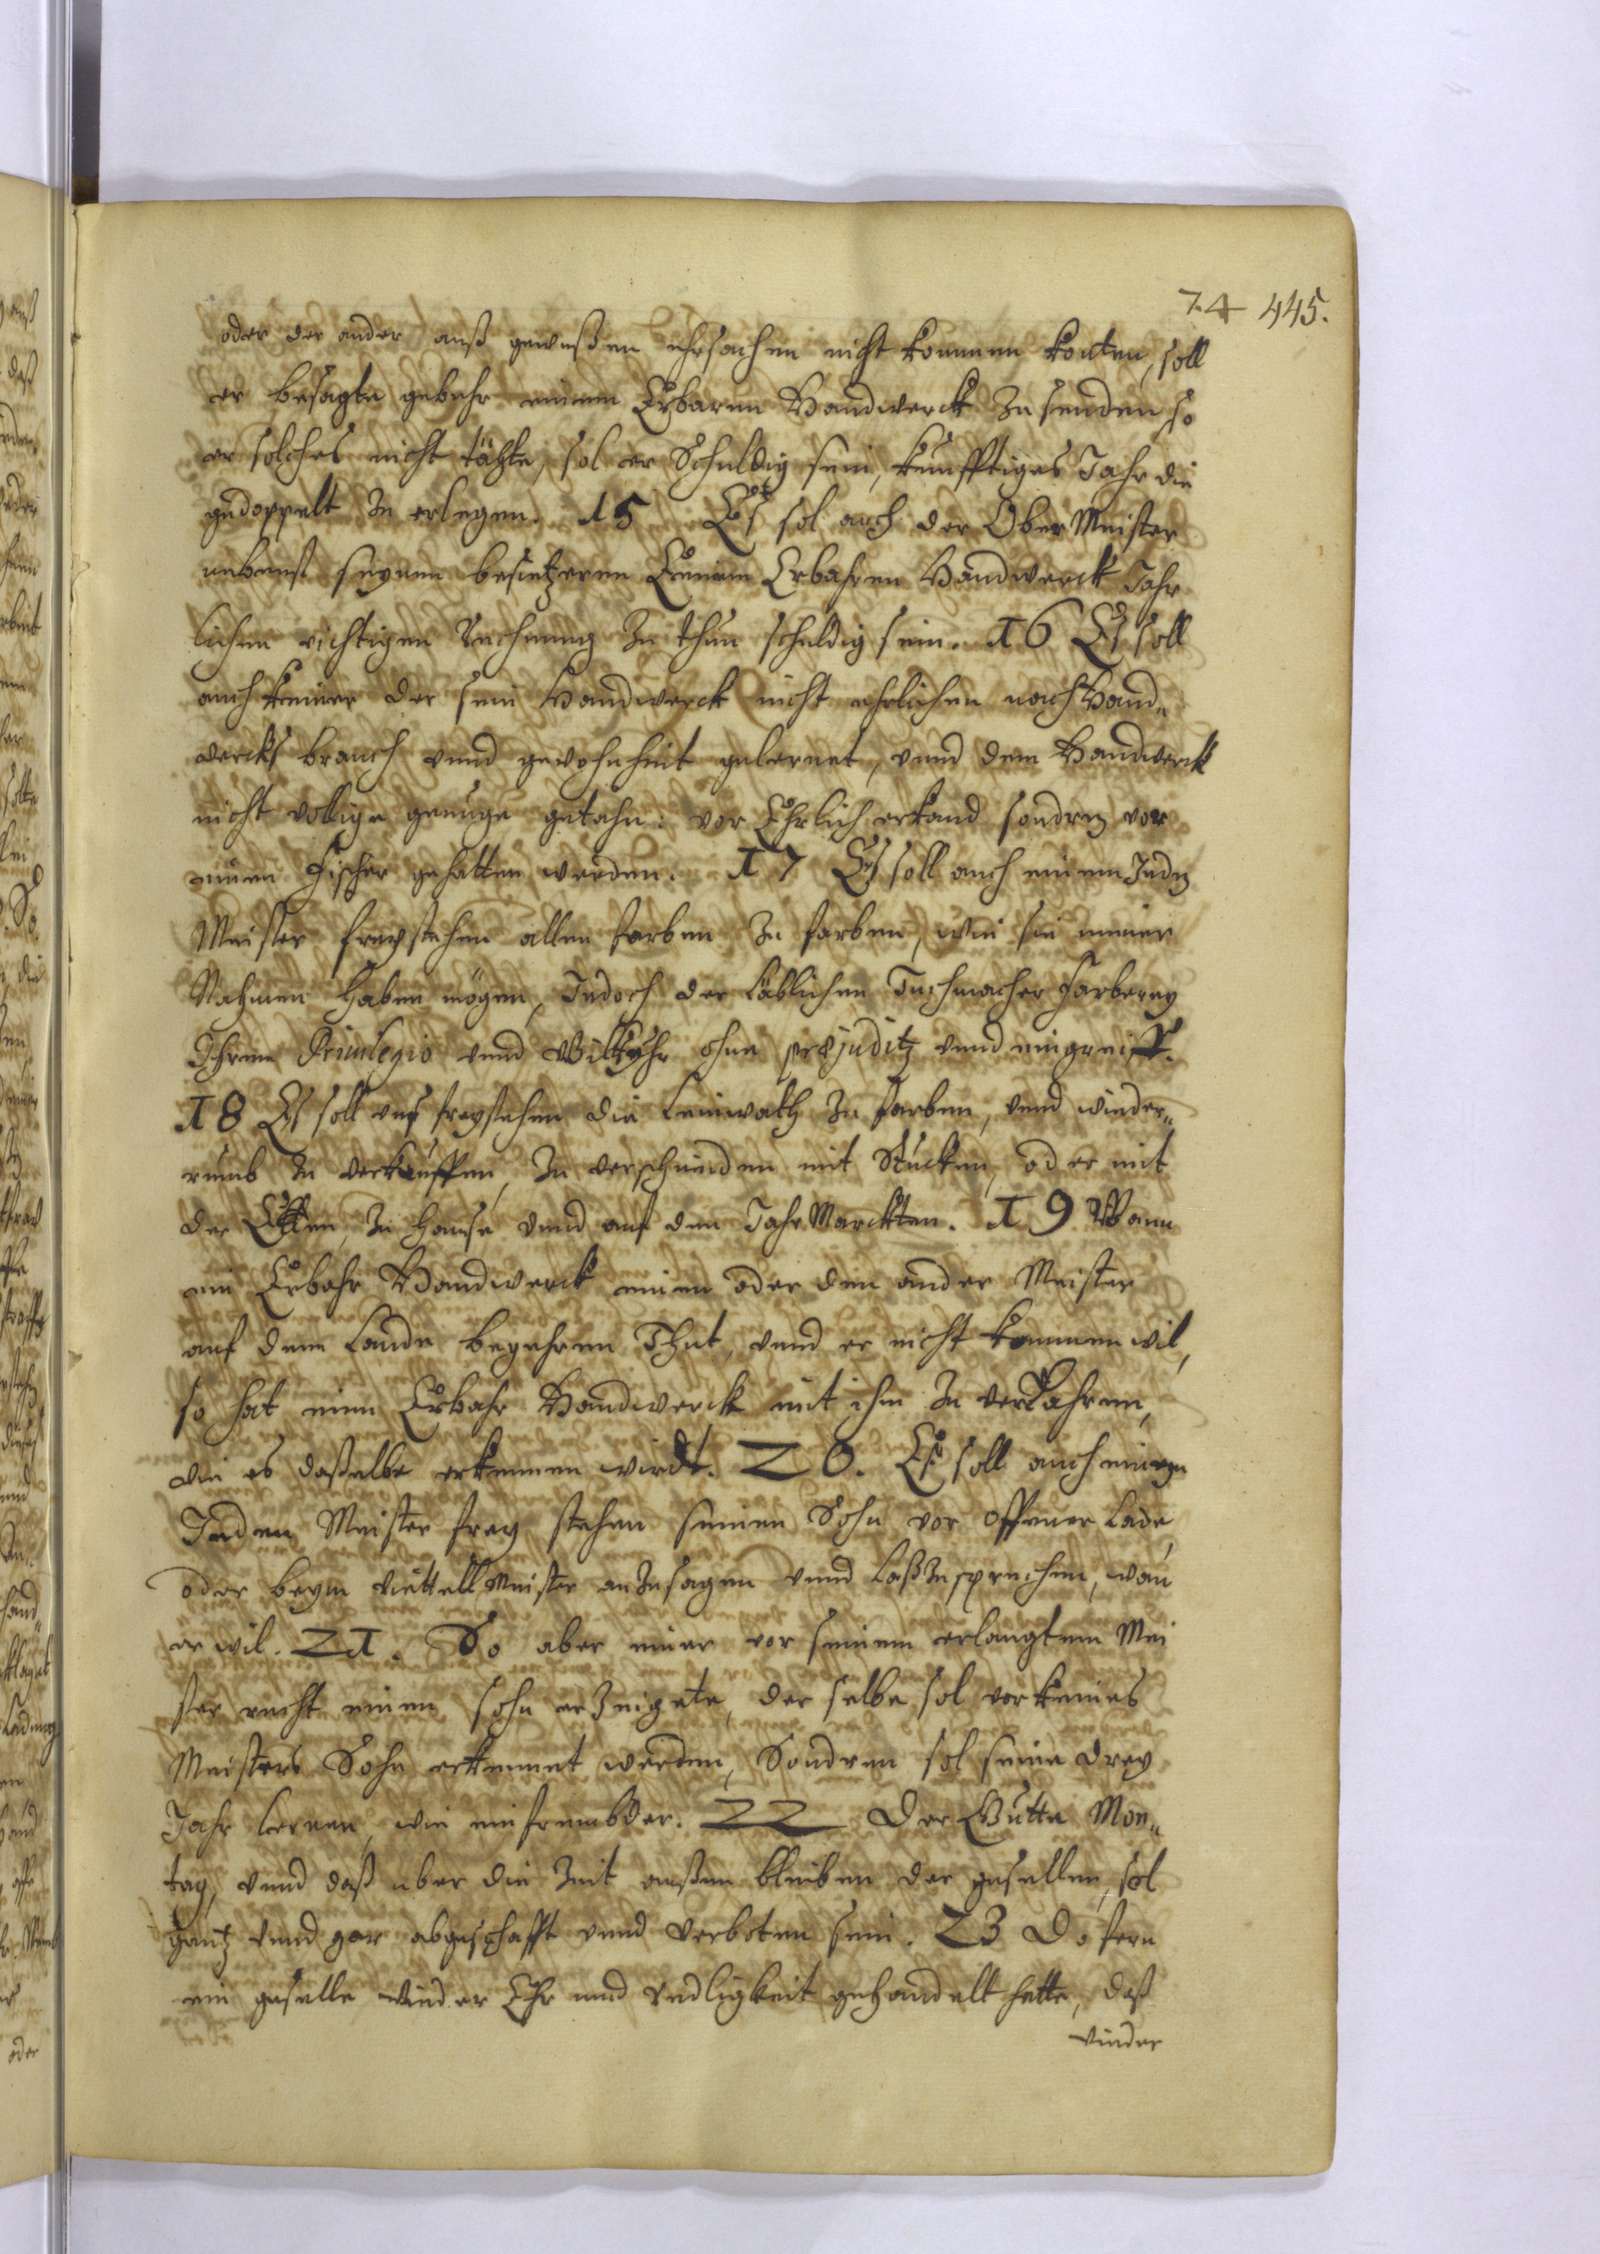 74 445.
oder der ander auß gewißen uhrsachen nicht kommen konten, soll
er besagte gebuhr einem Erbaren Handwerck zu senden so
er solches nicht täthe, sol er Schuldig sein, kunfftiges Jahr die
gedoppelt zu erlegen. 15 Es sol auch der Ober Meister
nebenst seynen besitzeren Einem Erbahren Handwerck Jahr
lichen richtigen Rechnung zu thun schuldig sein. 16 Es soll
auch keiner der sein Handwerck nicht ehrlichen nach Hand„
wercks brauch vnnd gewohnheit gelernet, vnnd dem Handwerck
nicht vollige genuge gethan: vor Ehrlich erkand sondern vor
einen fischer gehalten werden. 17 Es soll auch einem Jeden
Meister freystehen allen farben zu farben, wie sie immer
Nahmen haben mögen, Jedoch der Löblichen Tuchmacher farberey
Ihrem Privilegio vnnd Willkuhr ohne præjuditz vnnd eingreiff.
18 Es soll uns freystehen die Leinwath zu farben, vnnd wieder„
rumb zu verkauffen, zu verschneiden mit Stucken, oder mit
der Ellen, zu Hause vnnd auf den Jahr Marckten. 19 Wann
ein Erbahr Handwerck einen oder den ander Meister
auf dem Lande begehren Thut, vnnd er nicht kommen wil,
so hat eine Erbahr Handwerck mit ihm zu verfahren,
wie es daßelbe erkennen wirdt. 20. Es soll auch einem
Jeden Meister frey stehen seinen Sohn vor offener Lade,
oder beym Viettell Meister anzusagen vnnd Loßzusprechen, wan
er wil. 21. So aber einer vor seinem erlangtem Mei
ster recht einen sohn erzeigete, der selbe sol vor keines
Meisters Sohn erkennet werden, Sondren sol seine drey
Jahr lernen, wie ein frembder. 22 Der Gutte Mon„
tag, vnnd daß uber die Zeit außen bleiben der gesellen, sol
gantz vnnd gar abgeschafft vnnd verboten sein. 23 Do fern
ein geselle wieder Ehr und redligkeit gehandelt hette, daß
wieder